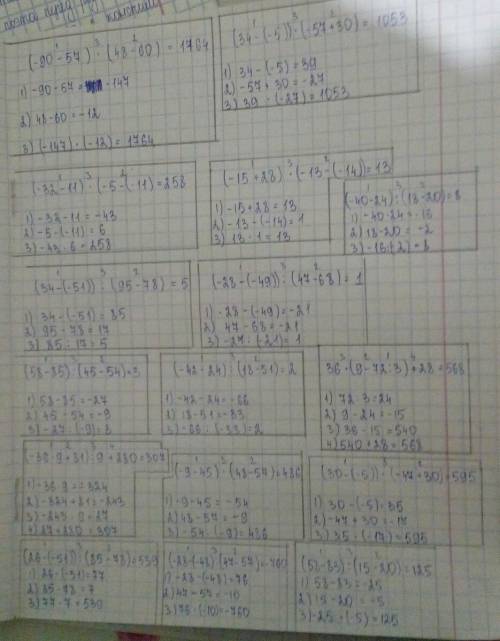 (-90-57) · (48-60) = 1764
1) -90-57 = -147
2) 48-60 = -12
3) (-147) · (-12) = 1764
(34-(-5)) · (-57+30) = 1053
1) 34-(-5) = 39
2) -57+30 = -27
3) 39 · (-27) = 1053
(-32-11) · (-5-(-11) = 258
1) -32-11 = -43
2) -5-(-11) = 6
3) -43 · 6 = 258
(-15+28) · (-13-(-14)) = 13
1) -15+28 = 13
2) -13-(-14) = 1
3) 13 · 1 = 13
(-40+24) : (18-20) = 8
1) -40+24 = -16
2) 18-20 = -2
3) -16 : (-2) = 8
(34-(-51)) : (95-78) = 5
1) 34-(-51) = 85
2) 95-78 = 17
3) 85 : 17 = 5
(-28-(-49)) : (47-68) = 1
1) -28-(-49) = -21
2) 47-68 = -21
3) -21 : (-21) = 1
(58-85) : (45-54) = 3
1) 58-85 = -27
2) 45-54 = -9
3) -27 : (-9) = 3
(-42-24) : (18-51) = 2
1) -42-24 = -66
2) 18-51 = -33
3) -66 : (-33) = 2
36 · (9-72:3) + 28 = 568
1) 72 : 3 = 24
2) 9-24 = -15
3) 36 · 15 = 540
4) 540+28 = 568
(-36·9+81) : 9 + 280 = 307
1) -36·9 = -324
2) -324+81 = -243
3) -243 : 9 = 27
4) 27+280 = 307
(-9-45) · (48-57) = 486
1) -9-45 = -54
2) 48-57 = -9
3) -54 · (-9) = 486
(30-(-5)) · (-47+30) = 595
1) 30-(-5) = 35
2) -47+30 = -17
3) 35 · (-17) = 595
(26-(-51)) · (85-78) = 539
1) 26-(-51) = 77
2) 85-78 = 7
3) 77 · 7 = 539
(-28-(-48)) · (47-57) = -760
1) -28-(-48) = 76
2) 47-57 = -10
3) 76 · (-10) = -760
(58-83) · (15-20) = 125
1) 58-83 = -25
2) 15-20 = -5
3) -25 · (-5) = 125